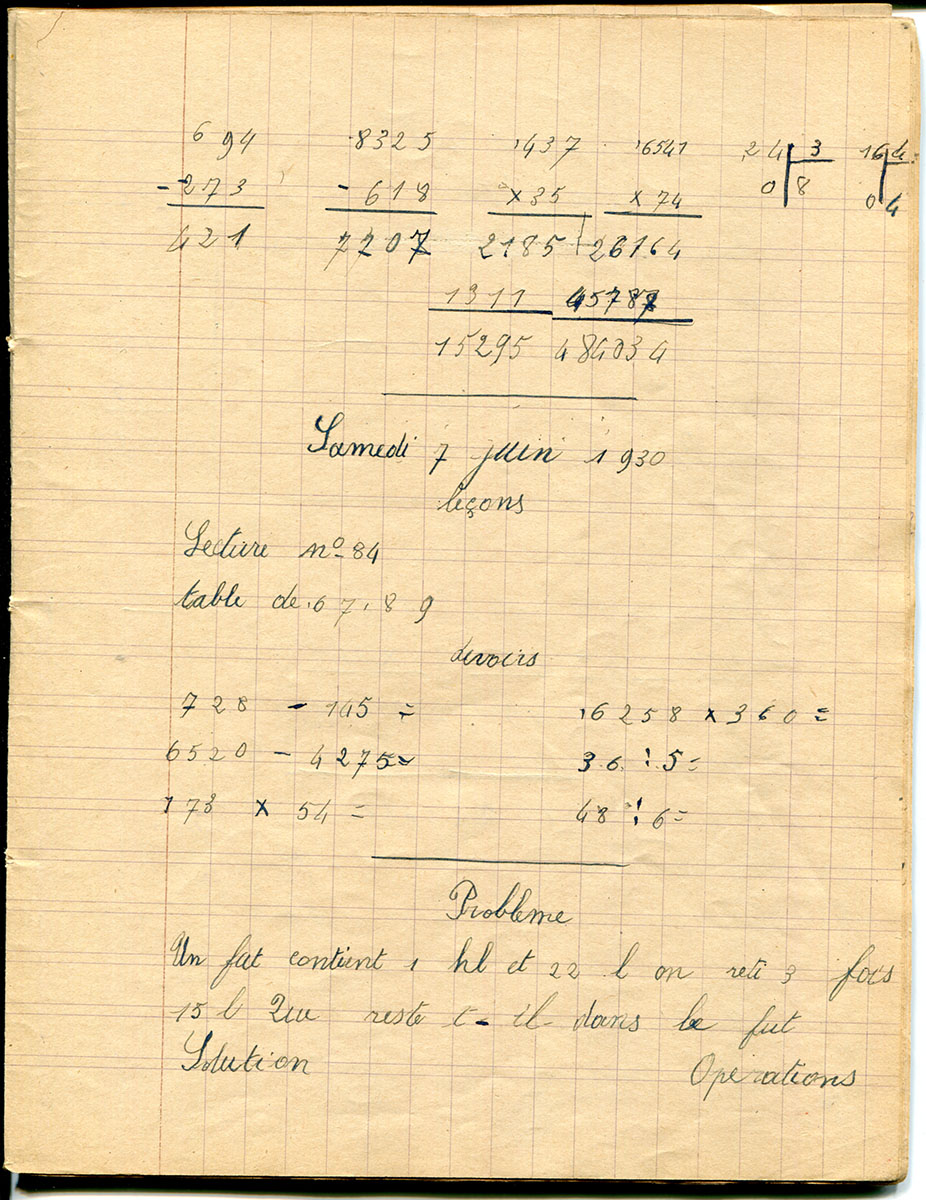 694 8325 437 6541 24 3 16 4
-273 - 618 ×35 ×74 0 8 0 4
421 7707 2185 26164
1311 45787
15295 484034
Samedi 7 juin 1930
leçons
Lecture nº 84
table de 6 7 8 9
devoirs
728 - 145 = 6258 × 360 =
6520 - 4275= 36 : 5=
173 × 54 = 48 : 6=
Problème
Un fut contient 1 hl et 22 l on reti 3 fois
15 l Que reste t-il dans le fut
Solution Operations